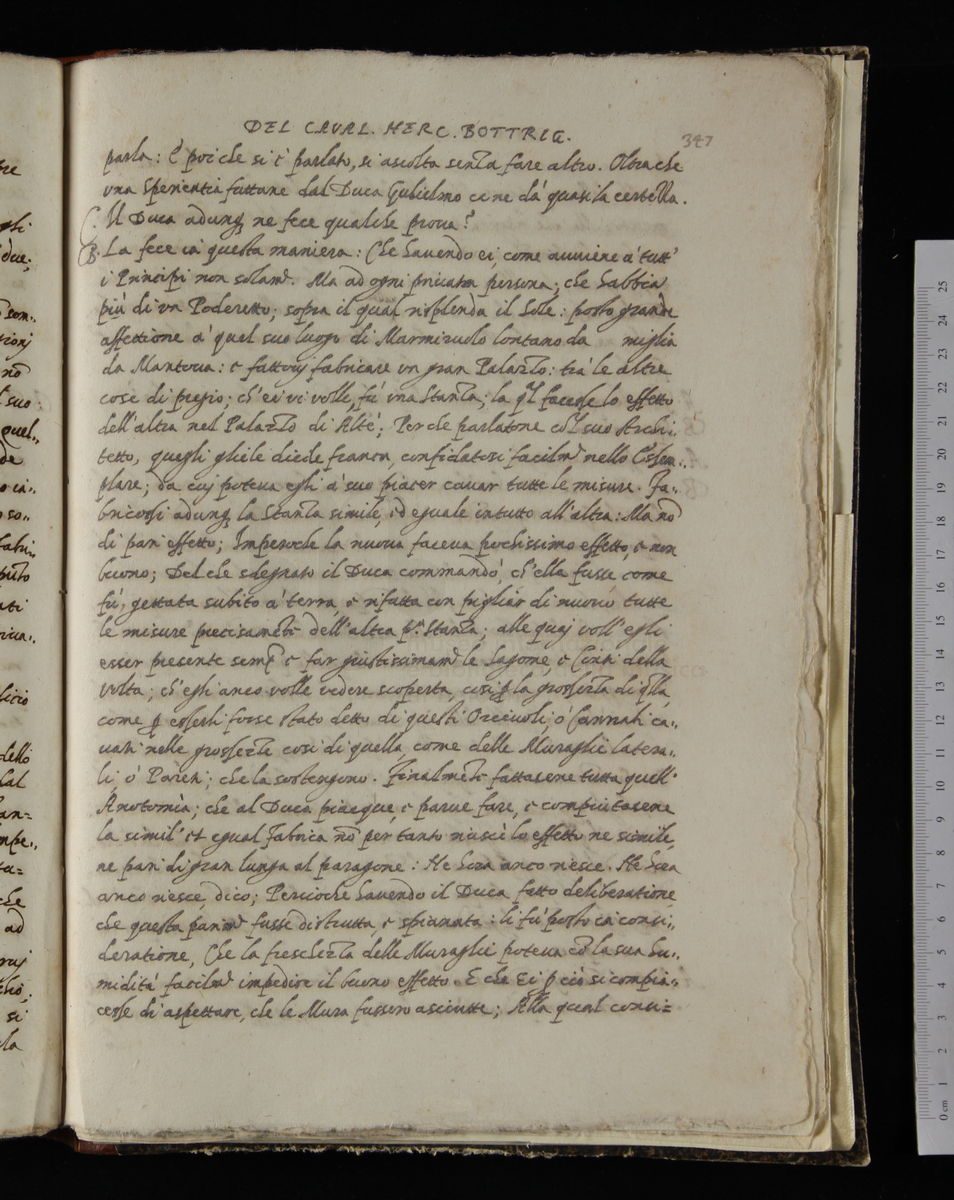 DEL CAVAL. HERC. BOTTRIG. 347
parla: E poi che si è parlato, si ascolta senza fare altro. Oltra che
una sperientia fattane dal Duca Gulielmo ce ne dà quasi la certezza.
C. Il Duca adunq; ne fece qualche prova?
B. La fece in questa maniera: Che havendo ei, come avviene à tutt'
i Principi non solam.te Ma ad ogni privata persona; che habbia
più di un Poderetto; sopra il qual risplenda il Sole: posto grande
affettione à quel suo luogo di Marmiruolo lontano da miglia
da Mantova: e fattovi fabricare un gran Palazzo: trà le altre
cose di pregio; ch'ei vi volle, fù una Stanza; la q̃l facesse lo effetto
dell'altra nel Palazzo di Altè; Perche parlatone cõ'l suo Archi,,
tetto, quegli gliele diede franca, confidatosi facilm.te nello Essem,,
plare; da cui poteva egli à suo piacer cavar tutte le misure. Fa,,
bricossi adunq; la Stanza simile, ed eguale in tutto all'altra: Ma nõ
di pari effetto; Imperoche la nuova faceva pochissimo effetto, e non
buono; Del che sdegnato il Duca commandò, ch'ella fusse come
fù, gettata subito à terra, e rifatta con pigliar di nuovo tutte
le misure precisamẽte dell'altra p.a Stanza; alle quaj voll'egli
esser presente semp̃ e far giustissimam.te le Sagome, e Cinti della
volta; ch'egli anco volle vedere scoperta, così ꝑ la grossezza di q̃lla
come ꝑ esserli forse stato detto di questi Orciuoli, ò Cannati ca,,
vati nelle grossezze così di quella, come delle Muraglie latera,,
li, ò Pareti; che la sostengono. Finalmẽte fattasene tutta quell'
Anotomia; che al Duca piacque, e parve fare, e compiutasene
la simil' et egual Fabrica nõ per tanto riuscì lo effetto ne simile,
ne pari di gran lunga al paragone: Ne hora anco riesce. Ne hora
anco riesce, dico; Percioche havendo il Duca fatto deliberatione
che questa parim.te fusse distrutta, e spianata: li fù posto in consi,,
deratione, Che la freschezza delle Muraglie poteva cõ la sua hu,,
midità facilm.te impedire il buono effetto. E che Ei ꝑ ciò si compia,,
cesse di aspettare, che le Mura fussero asciutte; Alla qual consi=